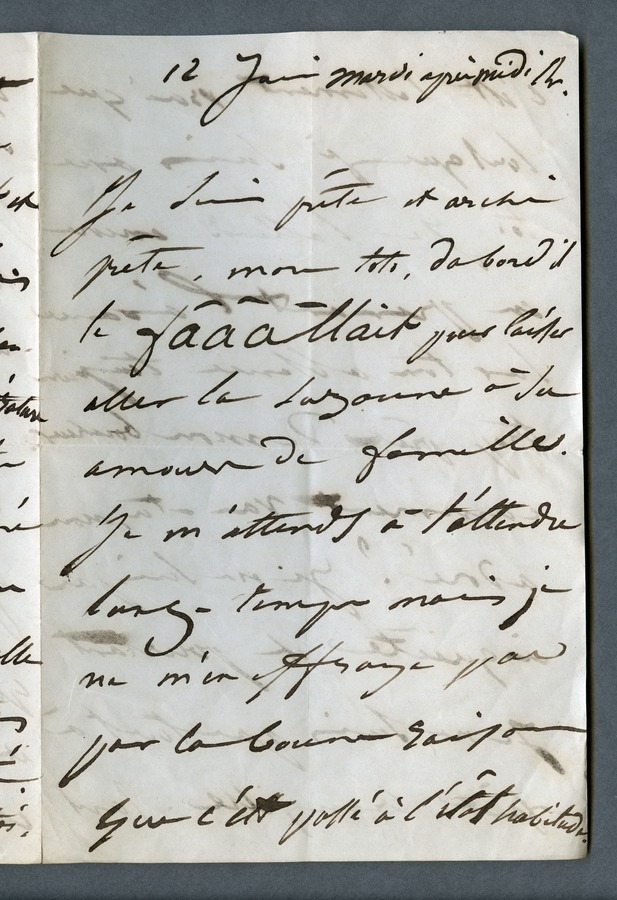 12 Juin mardi après midi 1h.
Je suis prête et archi
prête, mon toto, d'abord il
le fââââllait pour laisser
aller la Suzanne à ses
amours de famille.
Je m'attends à t'attendre
longtemps mais je
ne m'en effraye pas
par la bonne raison
que c'est passé à l'état d'habitude.